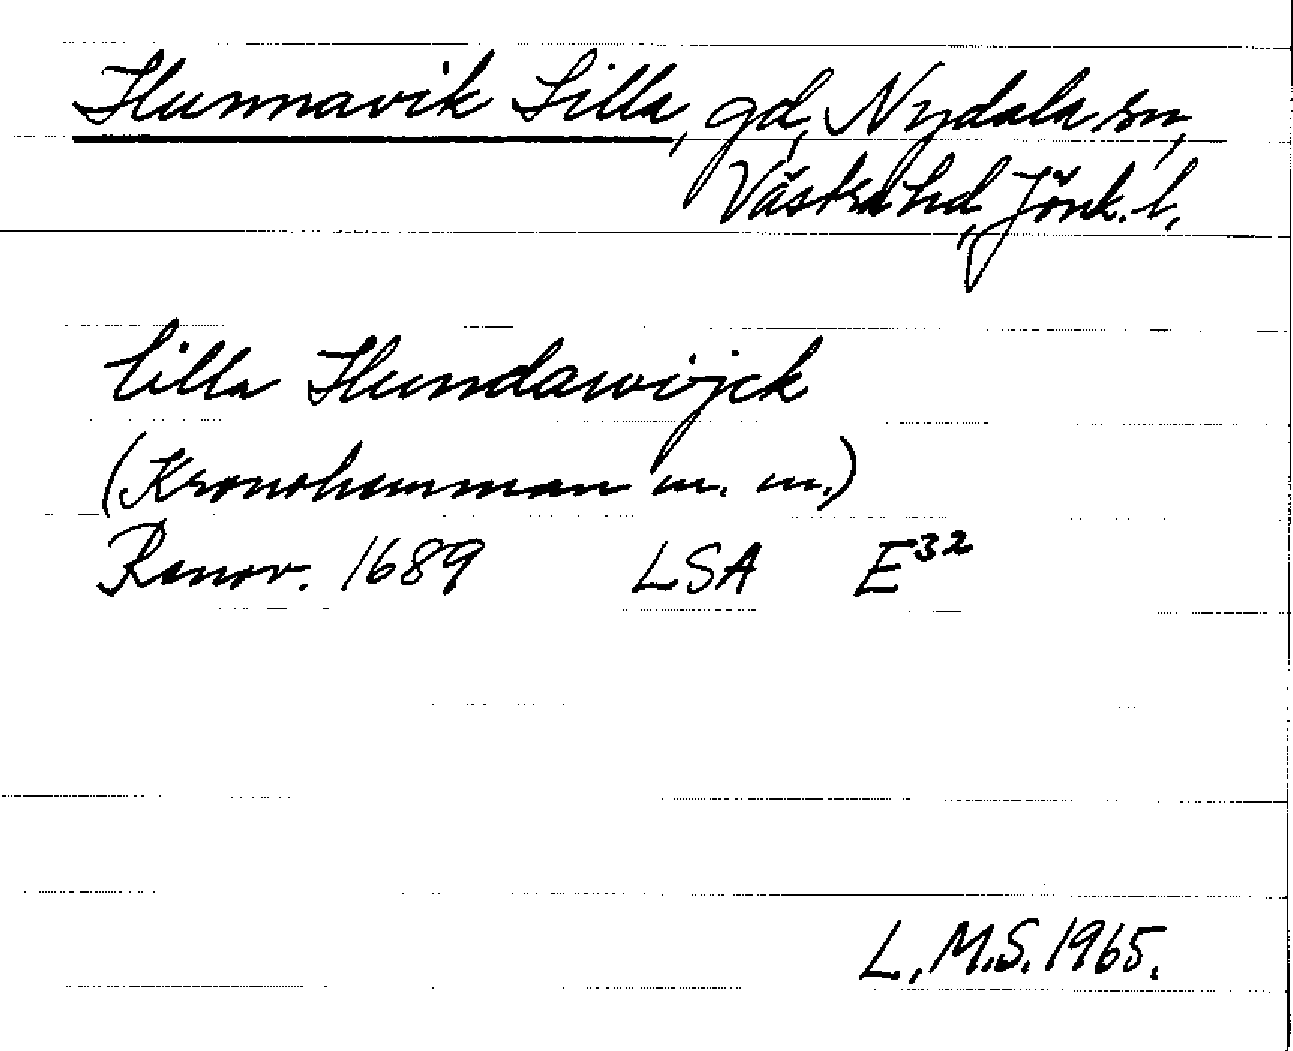 Hunnavik Lilla, gd, Nydala sn,
Västra hd, Jönk. l,
Lilla Hundawijck
(Kronohemman m. m.)
Ranov. 1689 LSA E³²
L, M.S. 1965.